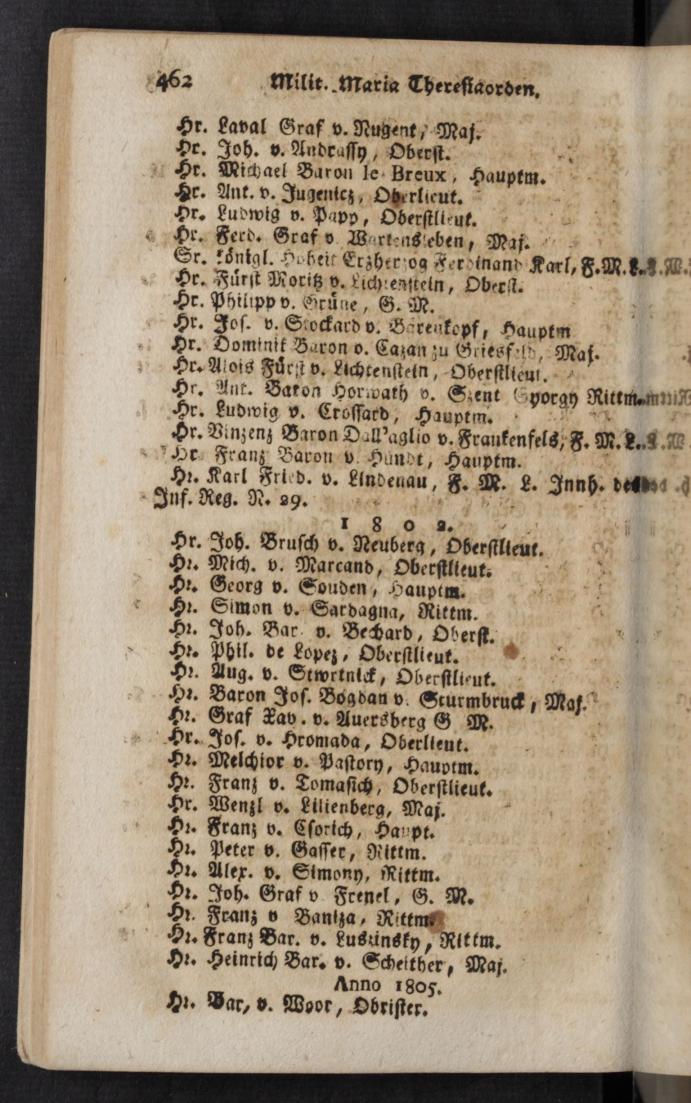 462 Milit. Maria Theresiaorden.
Hr. Laval Graf v. Nugent, Maj.
Hr. Joh. v. Andrassy, Oberst.
Hr. Michael Baron le Breux, Hauptm.
Hr. Ant. v. Jugenicz, Oberlieut.
Hr. Ludwig v. Papp, Oberstlieut.
Hr. Ferd. Graf v. Wartensleben, Maj.
Sr. königl. Hoheit Erzherzog Ferdinand Karl, F. M. L.
Hr. Fürst Moritz v. Lichtenstein, Oberst.
Hr. Philipp v. Grüne, G. M.
Hr. Jos. v. Stockard v. Bärenkopf, Hauptm
Hr. Dominik Baron v. Cazan zu Griesfeld, Maj.
Hr. Alois Fürst v. Lichtenstein, Oberstlieut.
Hr. Ant. Baron Horwath v. Szent Gyorgy Rittm.
Hr. Ludwig v. Crossard, Hauptm.
Hr. Vinzenz Baron Dall'aglio v. Frankenfels, F. M. L.
Hr. Franz Baron v. Hundt, Hauptm.
Hr. Karl Fried. v. Lindenau, F. M. L. Innh. des
Inf. Reg. N. 29.
1 8 0 2.
Hr. Joh. Brusch v. Neuberg, Oberstlieut.
Hr. Mich. v. Marcand, Oberstlieut.
Hr. Georg v. Souden, Hauptm.
Hr. Simon v. Sardagna, Rittm.
Hr. Joh. Bar. v. Bechard, Oberst.
Hr. Phil. de Lopez, Oberstlieut.
Hr. Aug. v. Stwrtnick, Oberstlieut.
Hr. Baron Jos. Bogdan v. Sturmbruck, Maj.
Hr. Graf Xav. v. Auersberg G. M.
Hr. Jos. v. Hromada, Oberlieut.
Hr. Melchior v. Pastory, Hauptm.
Hr. Franz v. Tomasich, Oberstlieut.
Hr. Wenzl v. Lilienberg, Maj.
Hr. Franz v. Csorich, Haupt.
Hr. Peter v. Gasser, Rittm.
Hr. Alex. v. Simony, Rittm.
Hr. Joh. Graf v. Frenel, G. M.
Hr. Franz v Baniza, Rittm.
Hr. Franz Bar. v. Luszinsky, Rittm.
Hr. Heinrich Bar. v. Scheither, Maj.
Anno 1805.
Hr. Bar, v. Woor, Obrister.